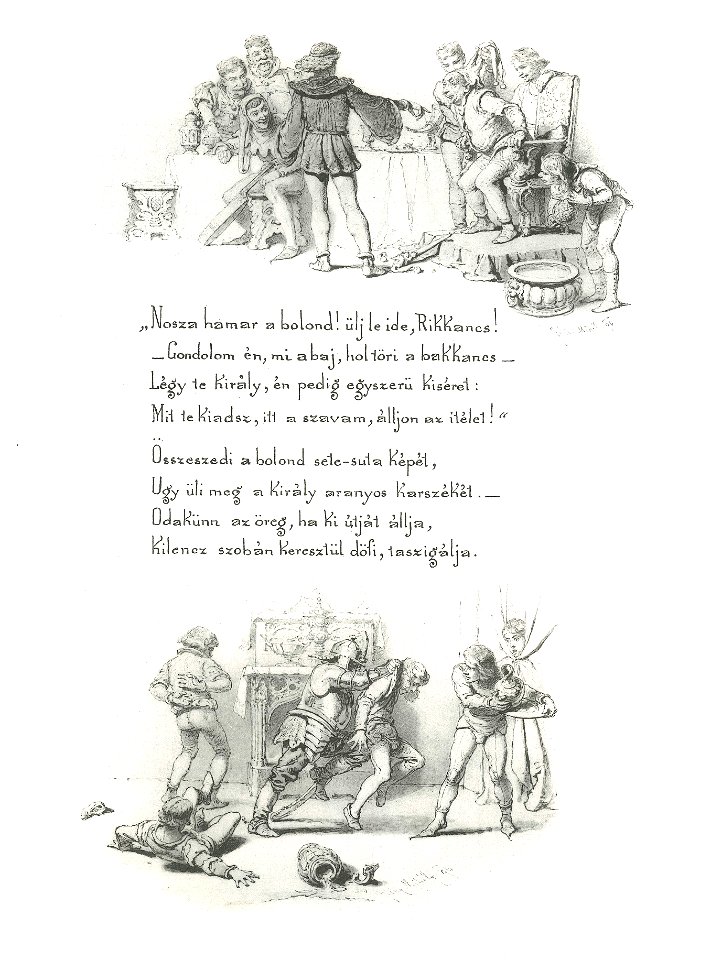 „Nosza hamar a bolond! ülj le ide, Rikkancs!
— Gondolom én, mi a baj, hol töri a bakkancs —
Légy te király, én pedig egyszerü kiséret:
Mit te kiadsz, itt a szavam, álljon az itélet!“
Összeszedi a bolond sete-suta képét,
Ugy üli meg a király aranyos karszékét. —
Odakünn az öreg, ha ki útját állja,
Kilencz szobán keresztül döfi, taszigálja.